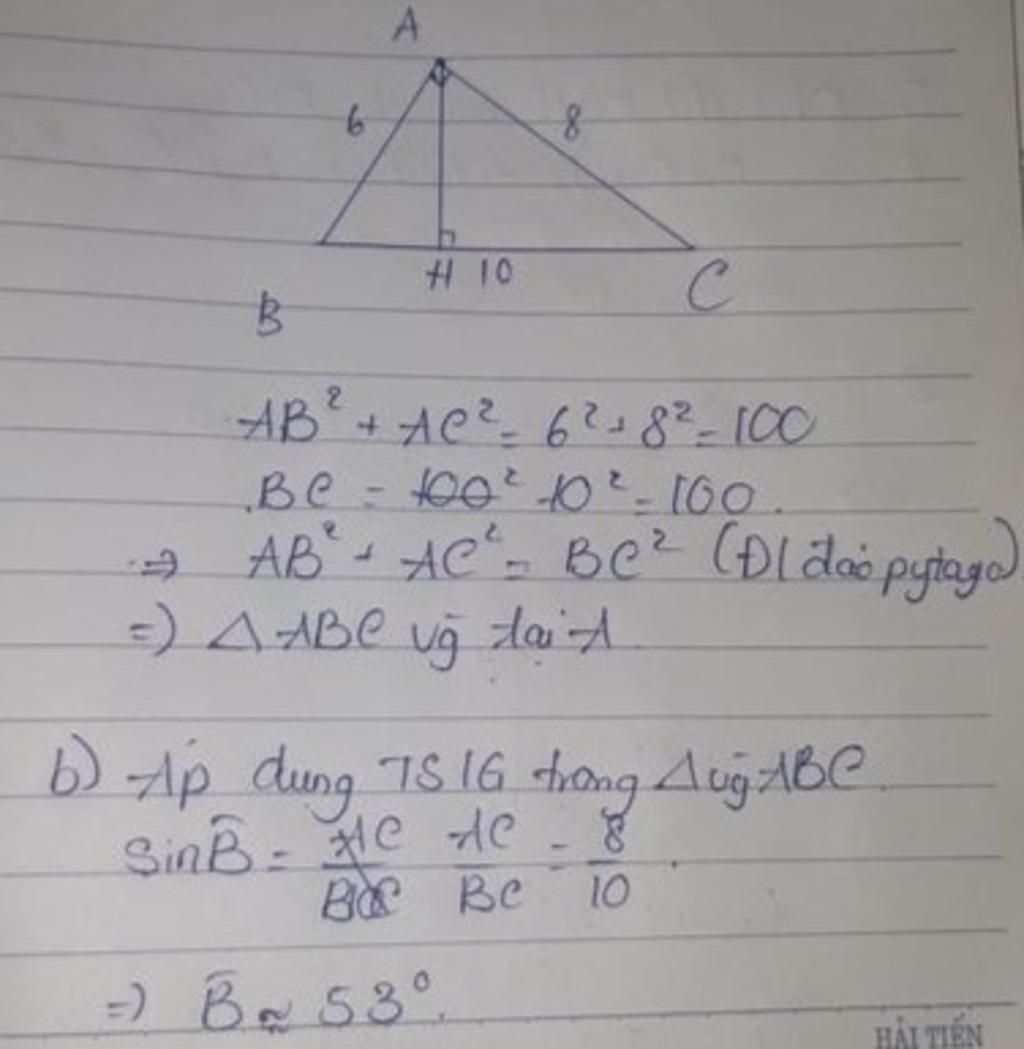 A
6
8
H 10
C
B
AB² + AC² = 6² + 8² = 100
BC = 100² 10² = 100.
⇒ AB² + AC² = BC² (Đl đảo pytago)
=) △ ABC vg̃ tại A
b) Áp dụng TSlG trong △ vg̃ ABC.
Sin B̂ = AC/BC AC/BC = 8/10.
=) B̂ ≈ 53°.
HẢI TIẾN